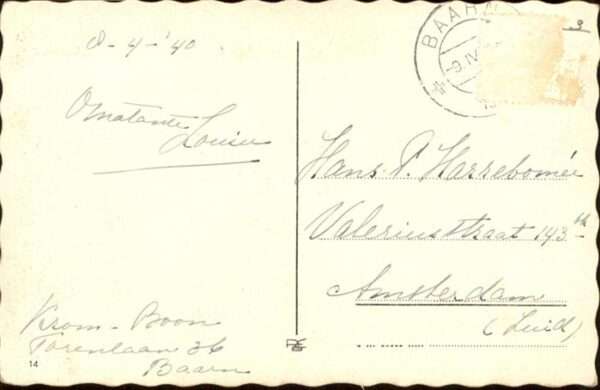 8-4-'40
Omatante
Louise
Krom-Boon
Torenlaan 36
Baarn
14
BAARN
-9.IV
9
Hans P. Harrebomée
Valeriusstraat 143
Amsterdam
(Zuid)